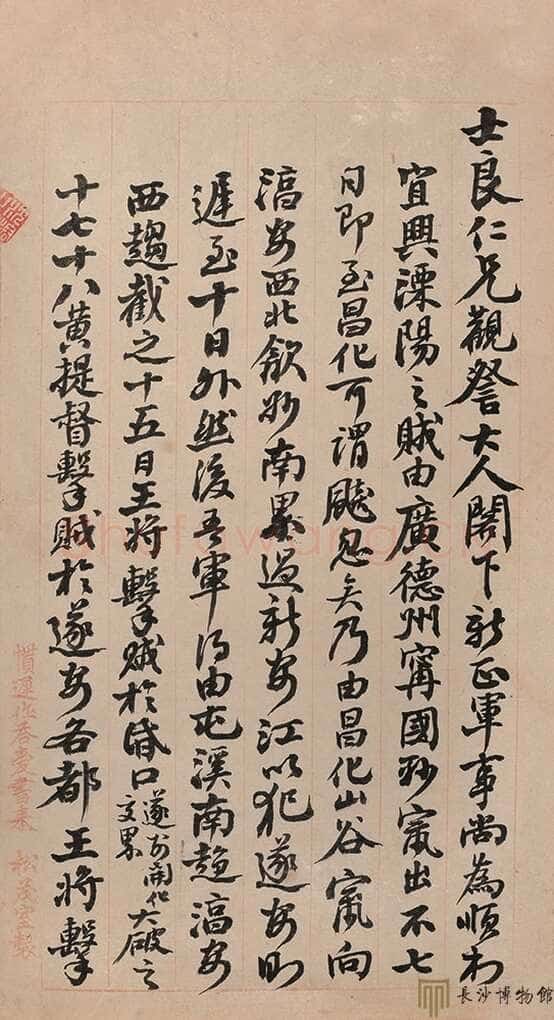 士良仁兄觀詧大人閣下新正軍事尚為順利
宜興溧陽之賊由廣德州甯國抄竄出不七
日即至昌化可謂飈忽矣乃由昌化山谷竄向
湻安西北抄南界過新安江以犯遂安則
遲至十日外然後吾軍乃由屯溪南趨湻安
西趨截之十五日王將擊賊於昏口遂安開化交界大破之
十七十八黃提督擊賊於遂安各都王將擊
松茂室製
shufawang.cn
長沙博物館